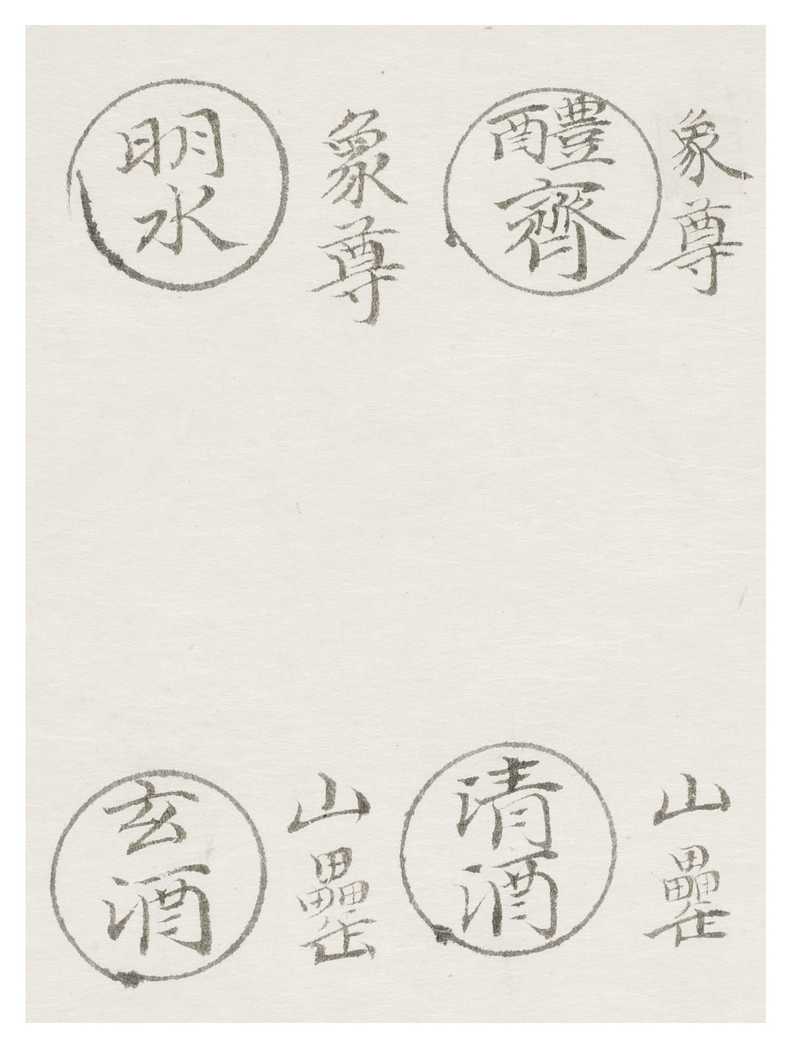 象尊
醴齊
象尊
明水
山罍
清酒
山罍
玄酒